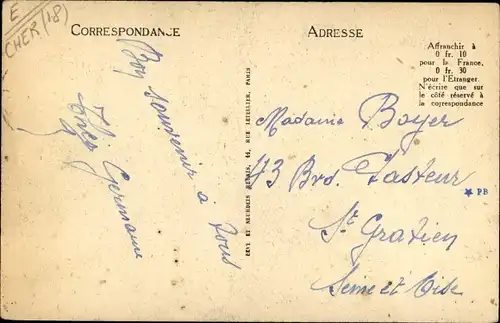 E
CHER (18)
CORRESPONDANCE
Bon souvenir à tous
Germaine
LEVY ET NEURDEIN RÉUNIS, 44, RUE LETELLIER, PARIS
ADRESSE
Affranchir à
0 fr. 10
pour la France,
0 fr. 30
pour l'Etranger.
N'écrire que sur
le côté réservé à
la correspondance
Madame Boyer
43 Bvd. Pasteur
PB
St Gratien
Seine et Oise